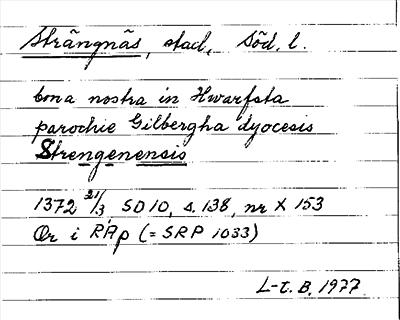 Strängnäs, stad, Söd. l.
bona nostra in Hwarfsta
parochie Gilbergha dyocesis
Strengenensis
1372 21/3 SD 10, s. 138, nr X 153
Or i RAp (= SRP 1033)
L-t. B. 1977